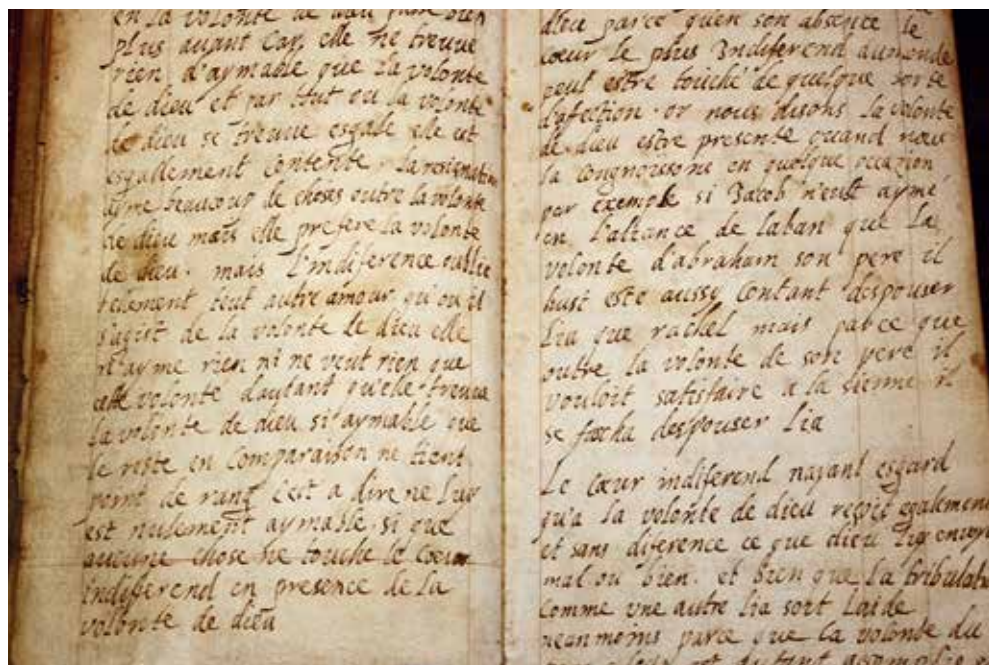 en la volonté de dieu
plus auant Car, elle ne treuue
rien d'aymable que la volonté
de dieu et par tout ou la volonté
de dieu se treuue esgale elle est
esgallement contente. La resignation
ayme beaucoup de choses outre la volonte
de dieu mais elle prefere la volonte
de dieu. mais l'indiference oublie
telement tout autre amour qu'ou il
s'agist de la volonte de dieu elle
n'ayme rien ni ne veut rien que
cette volonte dautant qu'elle treuue
la volonte de dieu si aymable que
le reste en Comparaison ne tient
point de rang C'est a dire ne luy
est nulement aymable. si que
aucune chose ne touche le Cœur
indiferend en presence de la
volonte de dieu
dieu parce quen son absence le
cœur le plus Indiferend aumonde
peut estre touché de quelque sorte
d'afection. or nous disons la volonte
de dieu estre presente quand nous
la congnoissons en quelque occazion
par exemple si Jacob n'eust aymé
en l'aliance de laban que la
volonte d'abraham son pere il
hust este aussy Contant despouser
Lia que rachel mais parce que
outre la volonte de son pere il
vouloit satisfaire a la sienne il
se fascha despouser Lia
Le Cœur indiferend nayant esgard
qu'a la volonte de dieu reçoit egalement
et sans diference ce que dieu luy
mal ou bien. et bien que la
Comme vne autre lia soit Laide
neanmoins parce que la volonte du